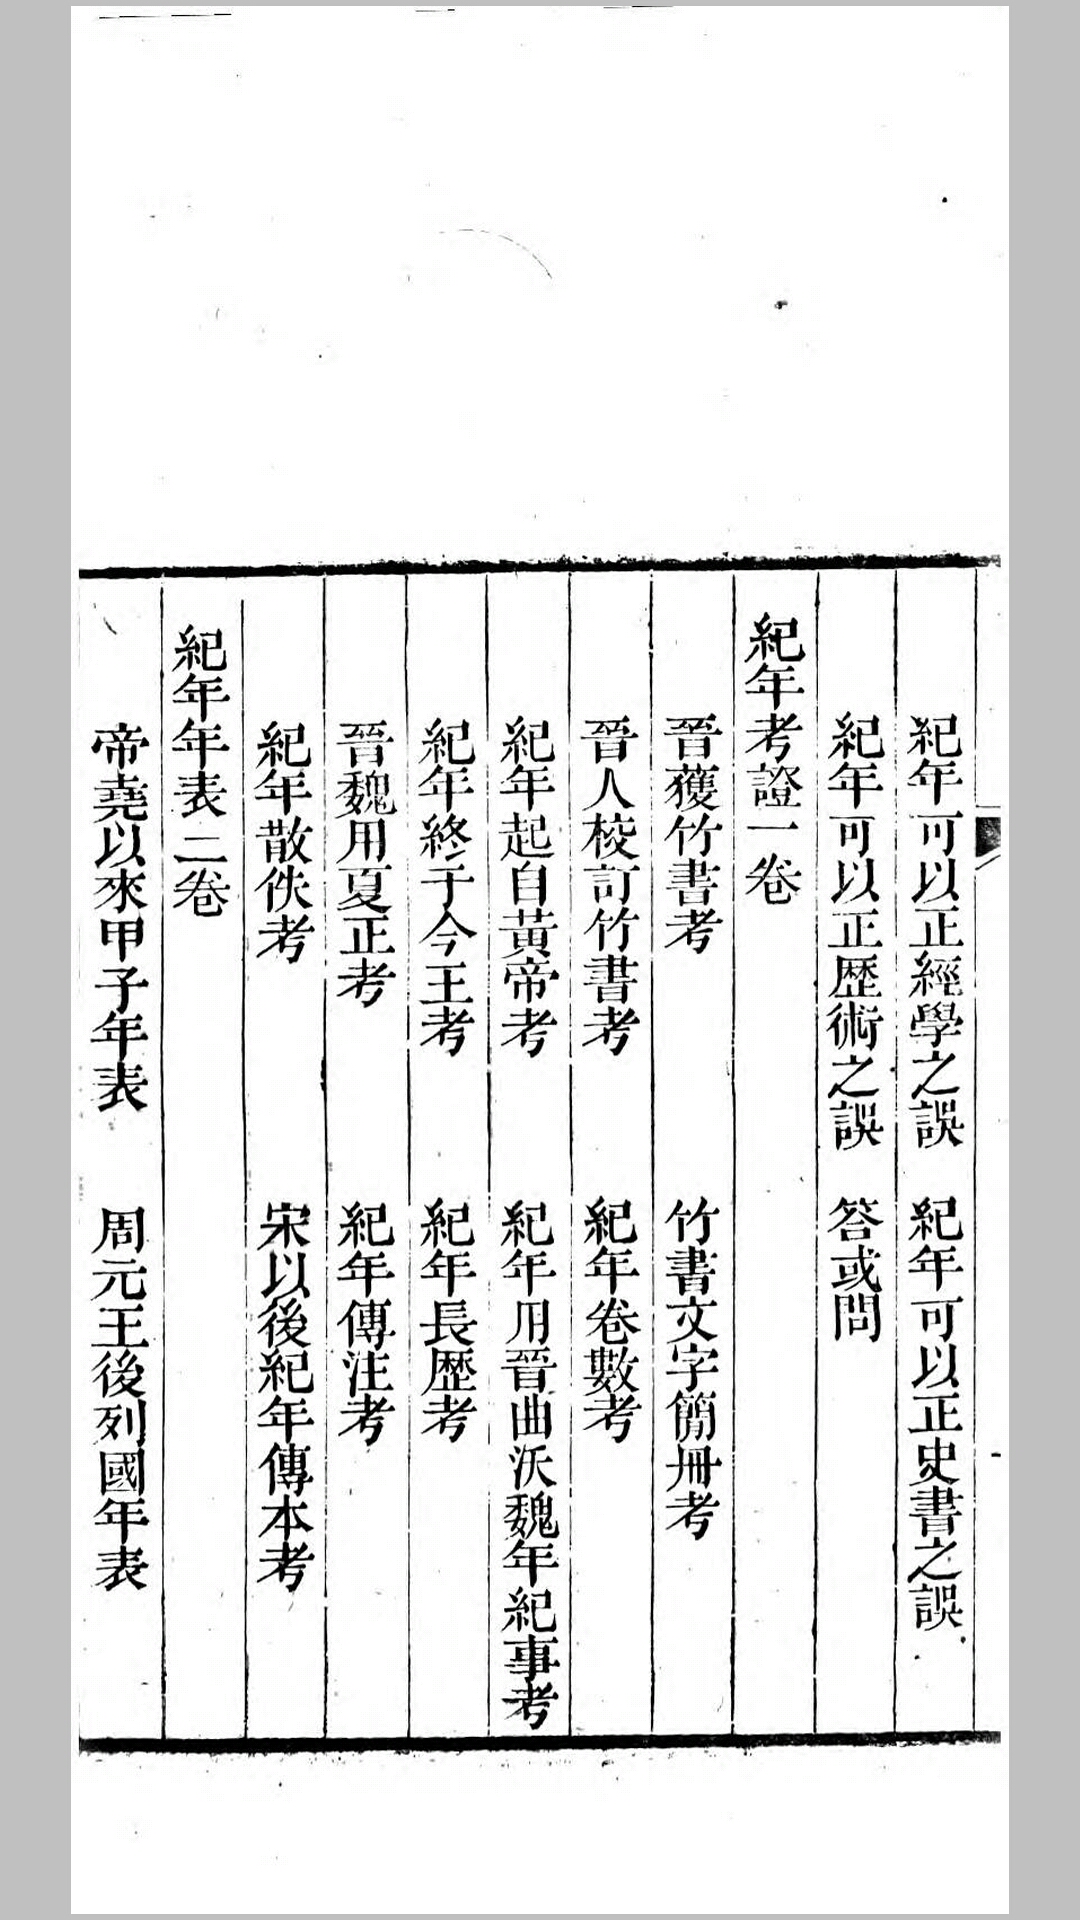 紀年可以正經學之誤　紀年可以正史書之誤
紀年可以正歷術之誤　答或問
紀年考證一卷
晉獲竹書考　竹書文字簡冊考
晉人校訂竹書考　紀年卷數考
紀年起自黃帝考　紀年用晉曲沃魏年紀事考
紀年終于今王考　紀年長歷考
晉魏用夏正考　紀年傳注考
紀年散佚考　宋以後紀年傳本考
紀年年表二卷
帝堯以來甲子年表　周元王後列國年表